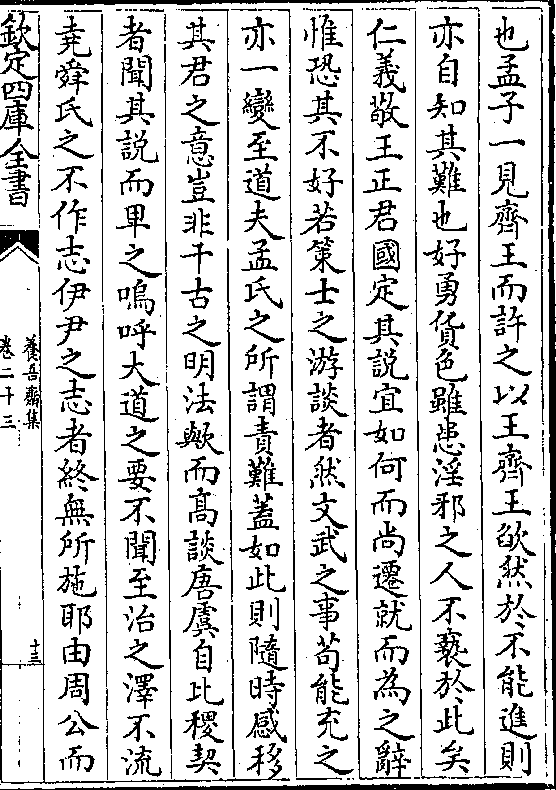 也孟子一見齊王而許之以王齊王欿然於不能進則
亦自知其難也好勇貨色雖患淫邪之人不褻於此矣
仁義敬王正君國定其説宜如何而尚遷就而為之辭
惟恐其不好若策士之游談者然文武之事苟能充之
亦一變至道夫孟氏之所謂責難蓋如此則隨時感移
其君之意豈非千古之明法歟而髙談唐虞自比稷契
者聞其説而卑之嗚呼大道之要不聞至治之澤不流
堯舜氏之不作志伊尹之志者終無所施耶由周公而
欽定四庫全書
養吾齋集
卷二十三
十三